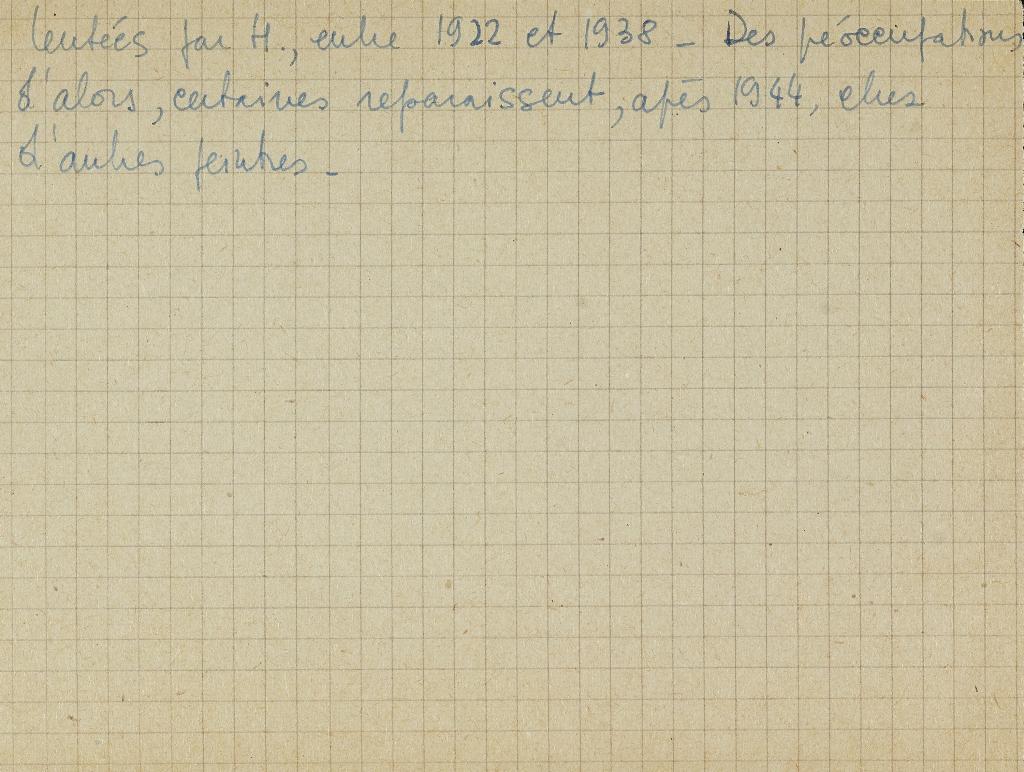 tentées par H., entre 1922 et 1938 – Des préoccupations
d'alors, certaines reparaissent, après 1944, chez
d'autres peintres –